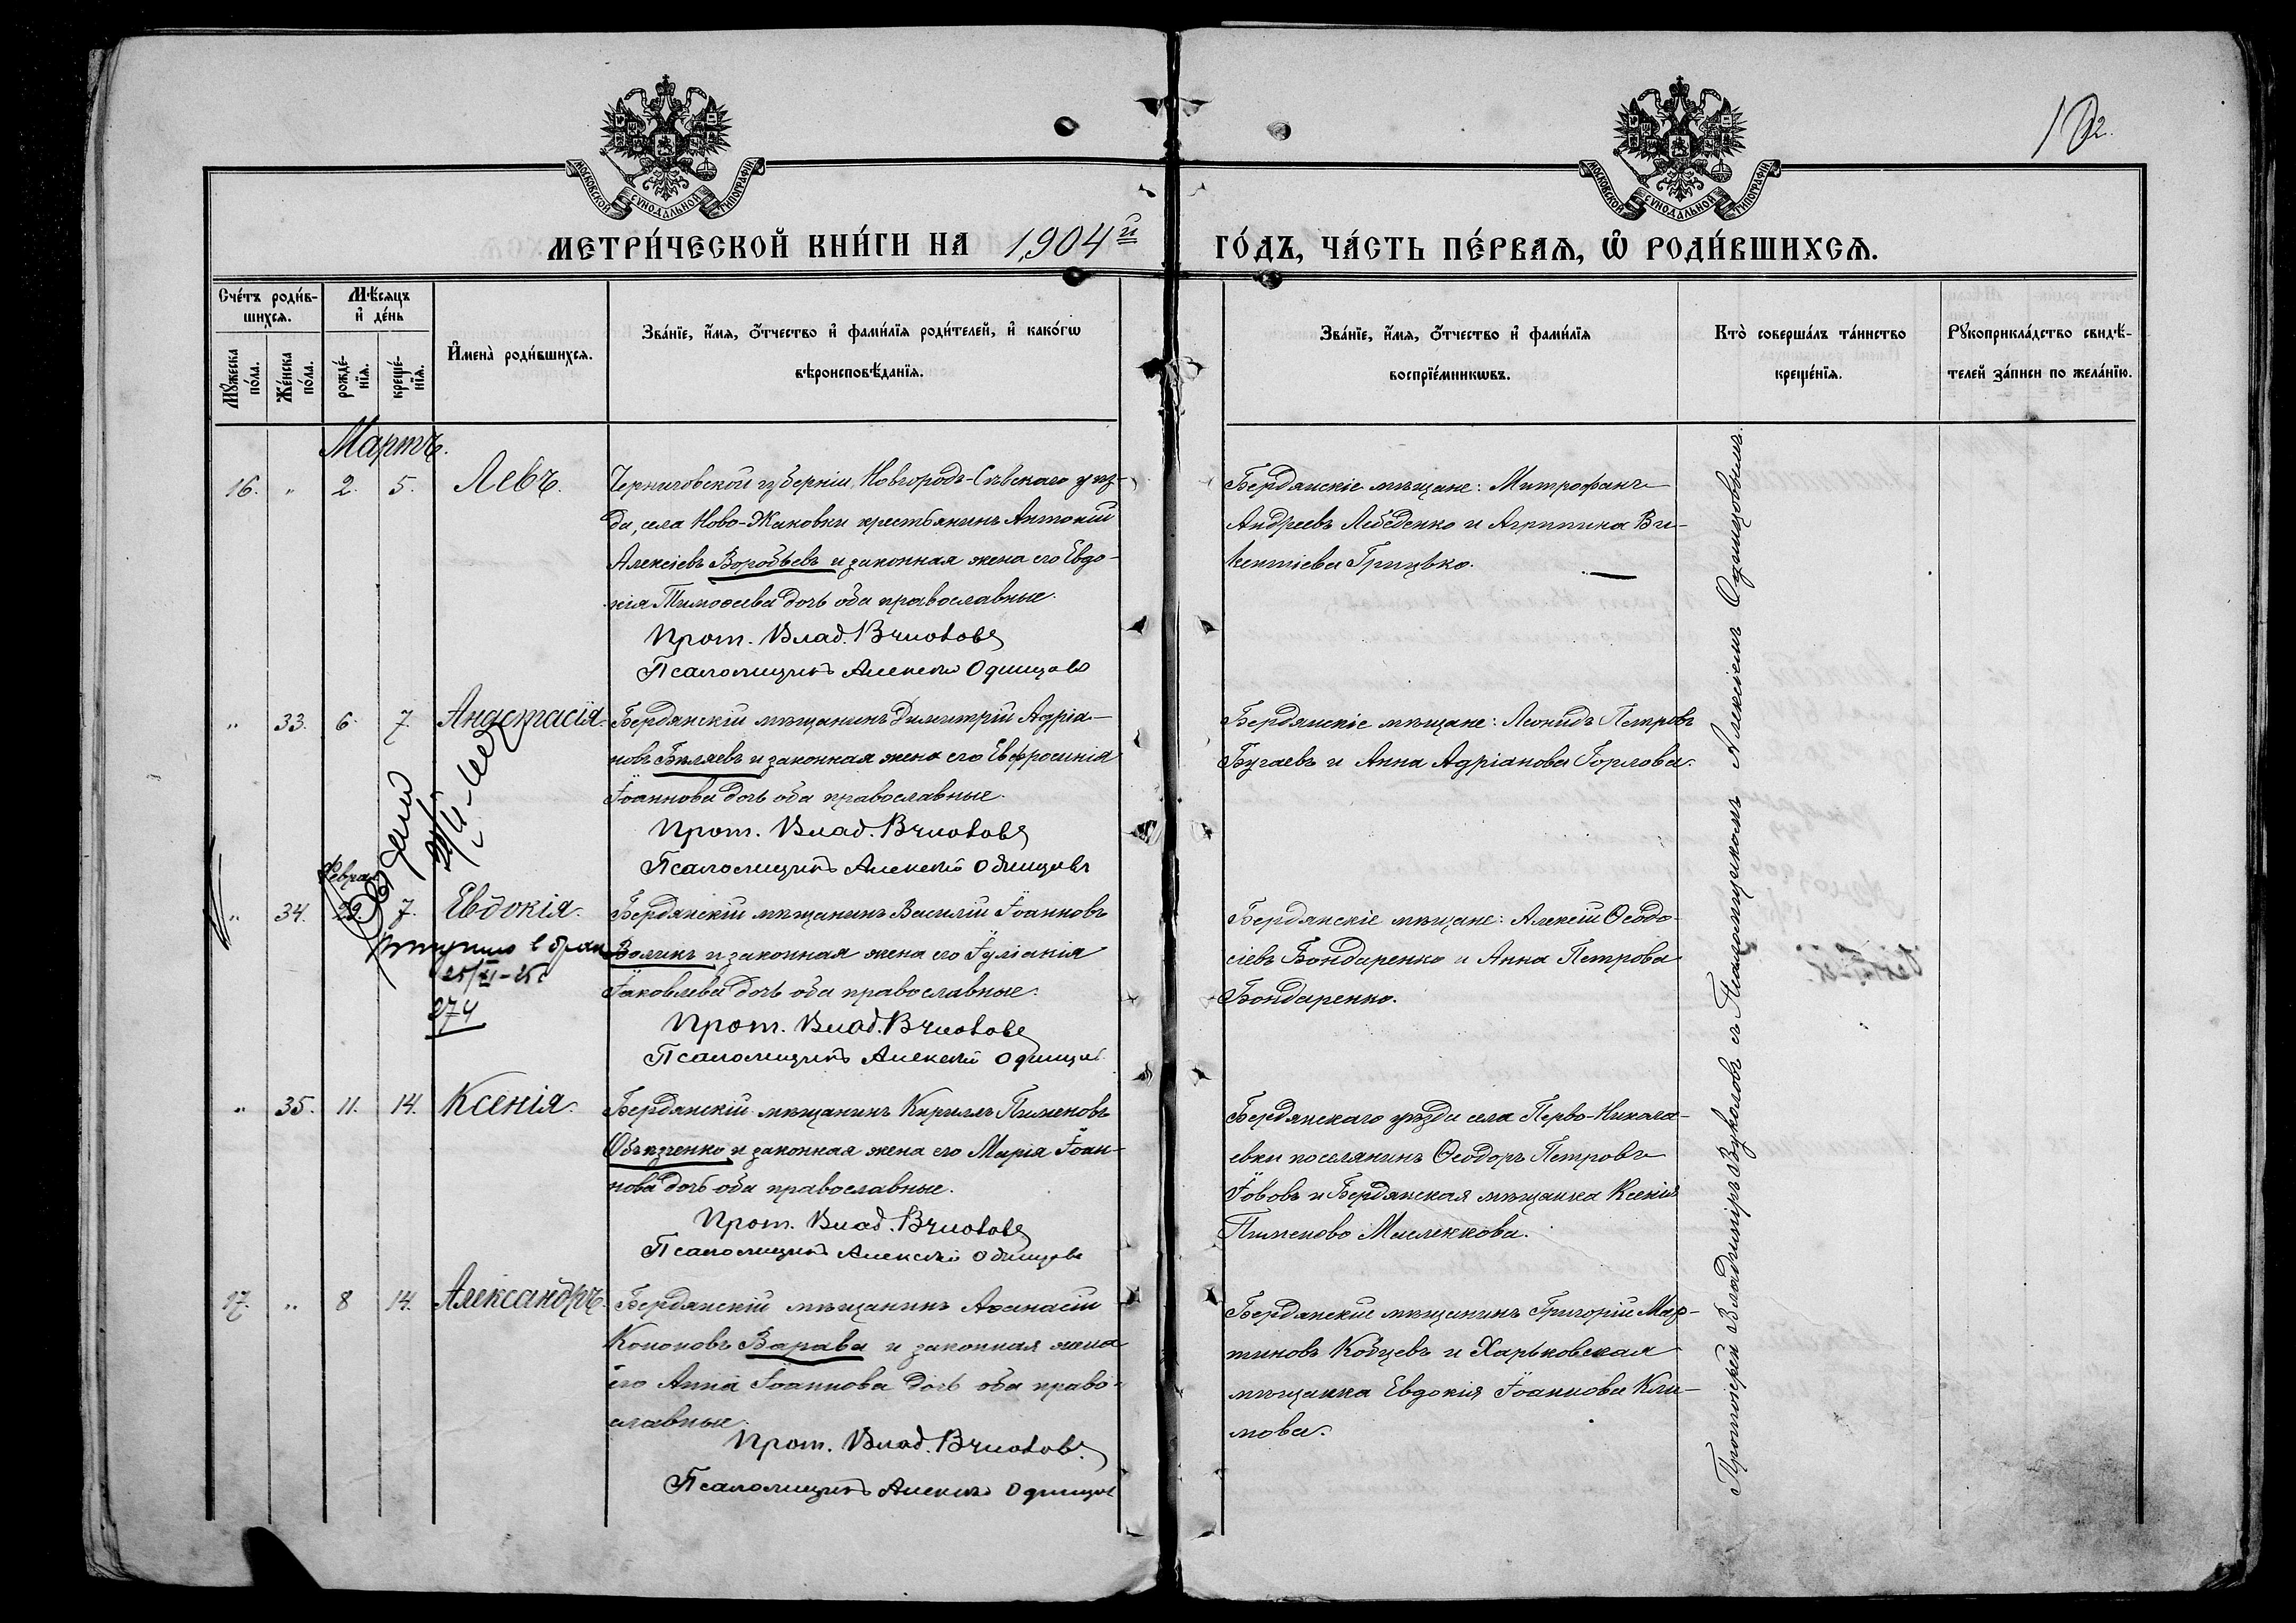 12.
МОСКОВСКОЙ СѴНОДАЛЬНОЙ ТИПОГРАФІИ
МОСКОВСКОЙ СѴНОДАЛЬНОЙ ТИПОГРАФІИ
МЕТРИ́ЧЕСКОЙ КНИ́ГИ НА 1904й ГО́ДЪ, ЧА́СТЬ ПЕ́РВАѦ, Ѡ РОДИ́ВШИХСѦ.
Сче́тъ роди́в-
шихсѧ.
Мѣ́сѧцъ
и҆ де́нь
Мꙋ́жеска
по́ла.
Же́нска
по́ла.
рожде́-
нїѧ.
креще́-
нїѧ.
И҆мена̀ роди́вшихсѧ.
Зва́нїе, и҆́мѧ, ѻ҆́тчество и҆ фами́лїѧ роди́телей, и҆ како́гѡ
вѣроисповѣ́данїѧ.
Зва́нїе, и҆́мѧ, ѻ҆́тчество и҆ фами́лїѧ
воспрїе́мникѡвъ.
Кто̀ соверша́лъ та́инство
креще́нїѧ.
Рꙋкоприкла́дство свидѣ́-
телей за́писи по жела́нїю.
Мартъ.
16. „ 2. 5. Левъ.
Черниговской губерніи, Новгородъ-Сѣвскаго уѣз-
да, села Ново-Жановки крестьянинъ Антоній
Алексіевъ Воробьевъ и законная жена его Евдо-
кія Тимоѳеева дочь оба православные.
Прот. Влад.
Псаломщикъ Алексѣй Одинцовъ
Бердянскіе мѣщане: Митрофанъ
Андреевъ Лебеденко и Агриппина Ви-
кентіева Грицько.
„ 33. 6. 7. Анастасія.
Бердянскій мѣщанинъ Димитрій Адріа-
новъ Бѣляевъ и законная жена его Евфросинія
Іоаннова дочь оба православные.
Прот. Влад.
Псаломщикъ Алексѣй Одинцовъ
Бердянскіе мѣщане: Леонидъ Петровъ
Бугаевъ и Анна Адріанова Горлова.
Феврал
„ 34. 29. 7. Евдокія.
вступило в брак
25/XI-25г
274
Бердянскій мѣщанинъ Василій Іоанновъ
Воликъ и законная жена его Іуліанія
Іаковлева дочь оба православные.
Прот. Влад.
Псаломщикъ Алексѣй Одинцов
Бердянскіе мѣщане: Алексій Ѳеодо-
сіевъ Бондаренко и Анна Петрова
Бондаренко.
„ 35. 11. 14. Ксенія.
Бердянскій мѣщанинъ Кириллъ Пименовъ
Объѣзченко и законная жена его Марія Іоан-
нова дочь оба православные.
Прот. Влад.
Псаломщикъ Алексѣй Одинцовъ
Бердянскаго уѣзда села Перво-Никола-
евки поселянинъ Ѳеодоръ Петровъ
Іововъ и Бердянская мѣщанка Ксенія
Пименова Масленкова.
17. „ 8 14. Александръ.
Бердянскій мѣщанинъ Аѳанасій
Кононовъ Варава и законная жена
его Анна Іоаннова дочь оба право-
славные.
Прот. Влад.
Псаломщикъ Алексѣй Одинцов
Бердянскій мѣщанинъ Григорій Мар-
тиновъ Кобцевъ и Харьковская
мѣщанка Евдокія Іоаннова Кли-
мова.
Протоіерей Владиміръ Вуколовъ съ Псаломщикомъ Алексіемъ Одинцовымъ.